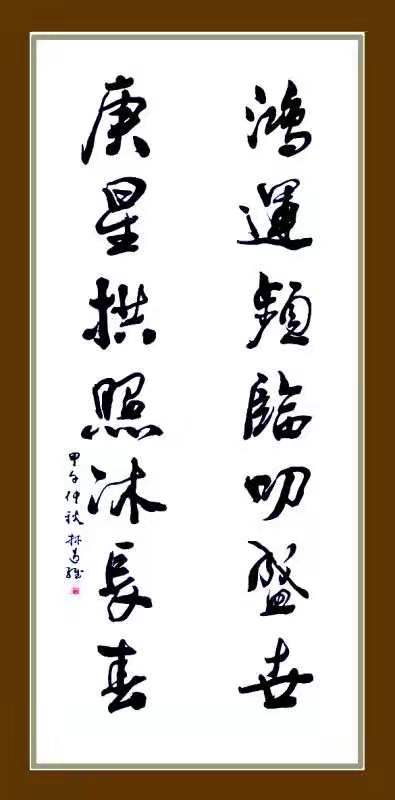 鴻運頻臨叨盛世
庚星拱照沐長春
甲午仲秋 林